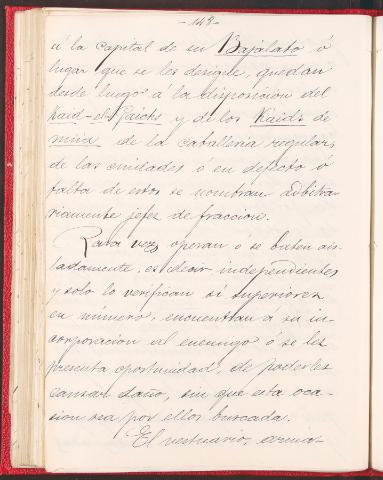 -148-
á la capital de su Bajalato ó
lugar que se les designe, quedan
desde luego á la disposicion del
Kaid-el-Gaichs y de los Kaid's de
miia de la caballeria regular,
de las unidades ó en defecto ó
falta de estos se nombran arbitra
riamente jefes de fraccion.
Rara vez, operan o se baten ais-
ladamente, es decir independientes
y solo lo verifican si superiores
en número, encuentran a su in-
corporacion al enemigo ó se les
presenta oportunidad, de poderles
causar daño, sin que esta oca-
sion sea por ellos buscada.
El vestuario, arma-